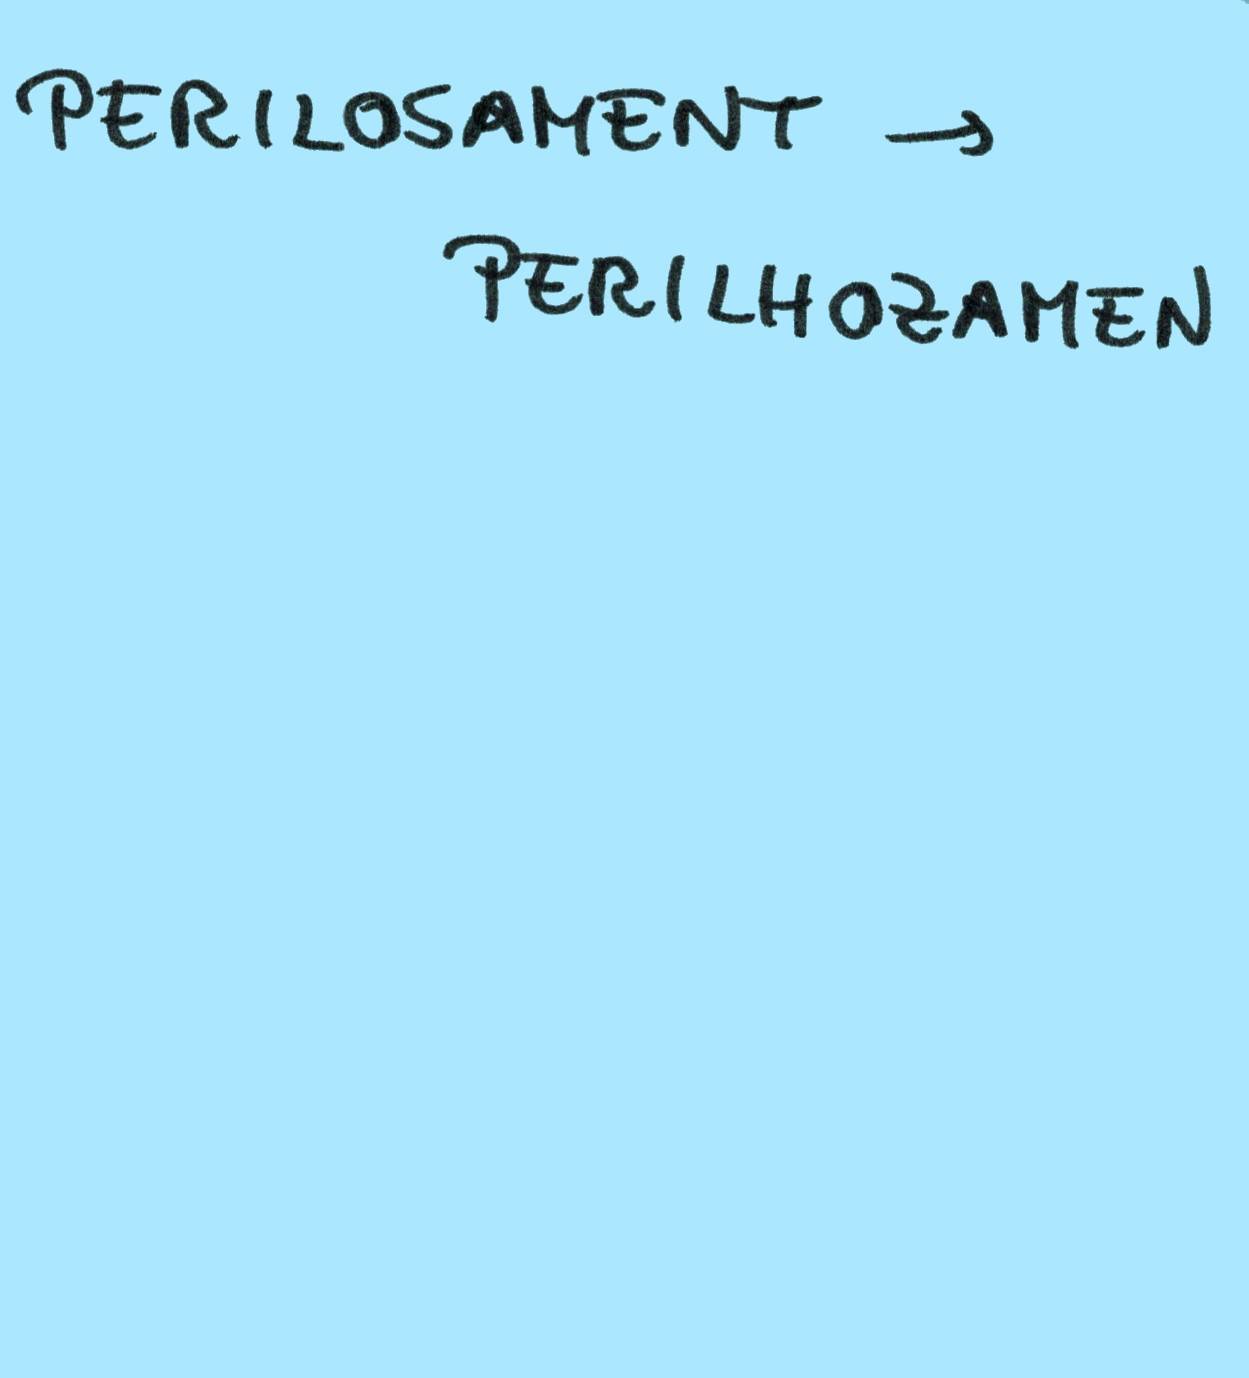 PERILOSAMENT →
PERILHOZAMEN